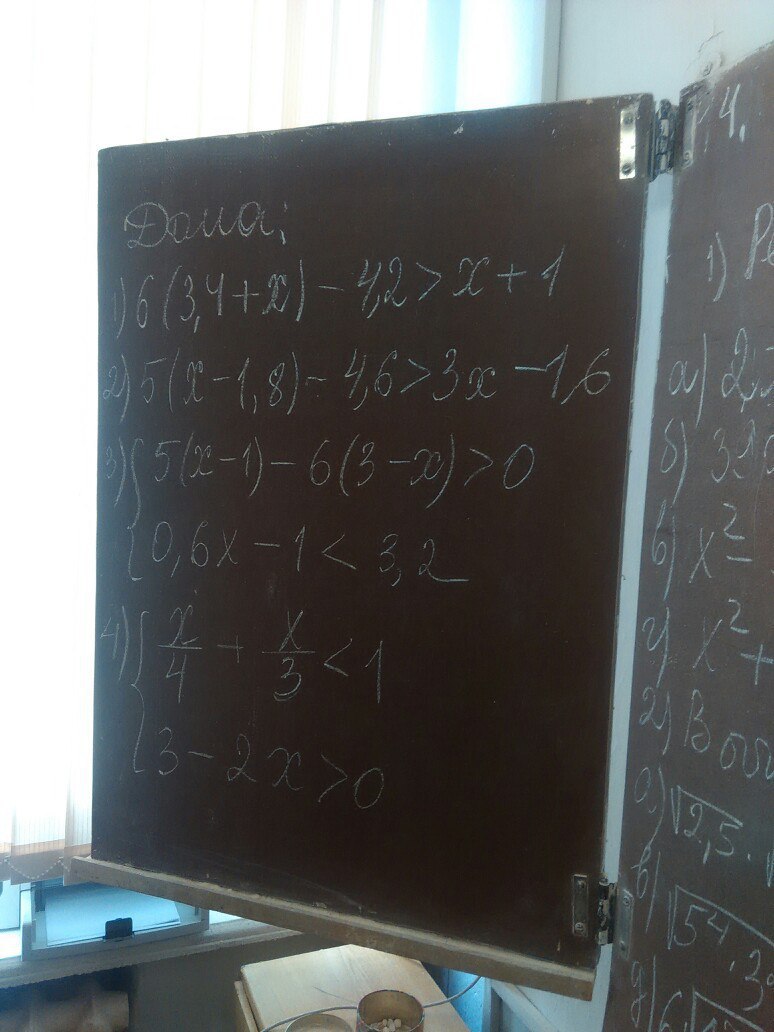 Дома:
1) 6(3,4+x) - 4,2 > x + 1
2) 5(x-1,8) - 4,6 > 3x - 1,6
3) { 5(x-1) - 6(3-x) > 0
{ 0,6x - 1 < 3,2
4) { x/4 + x/3 < 1
{ 3 - 2x > 0
4.
1)
а) 2,
б)
в) x² -
г) x² +
2) В
а) √2,5 ·
в) √5⁴ · 3